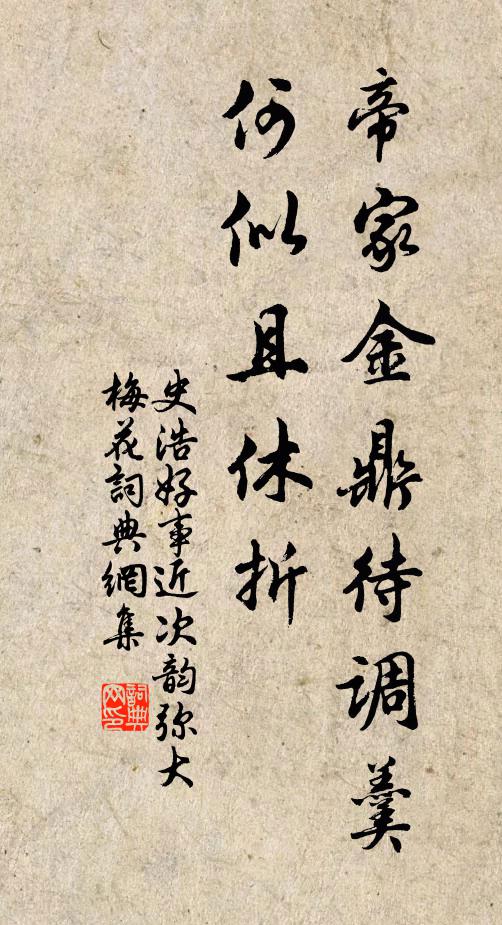 帝家金鼎待调羹
何似且休折
史浩好事近次韵弥大
梅花詞典網集
詞典网印